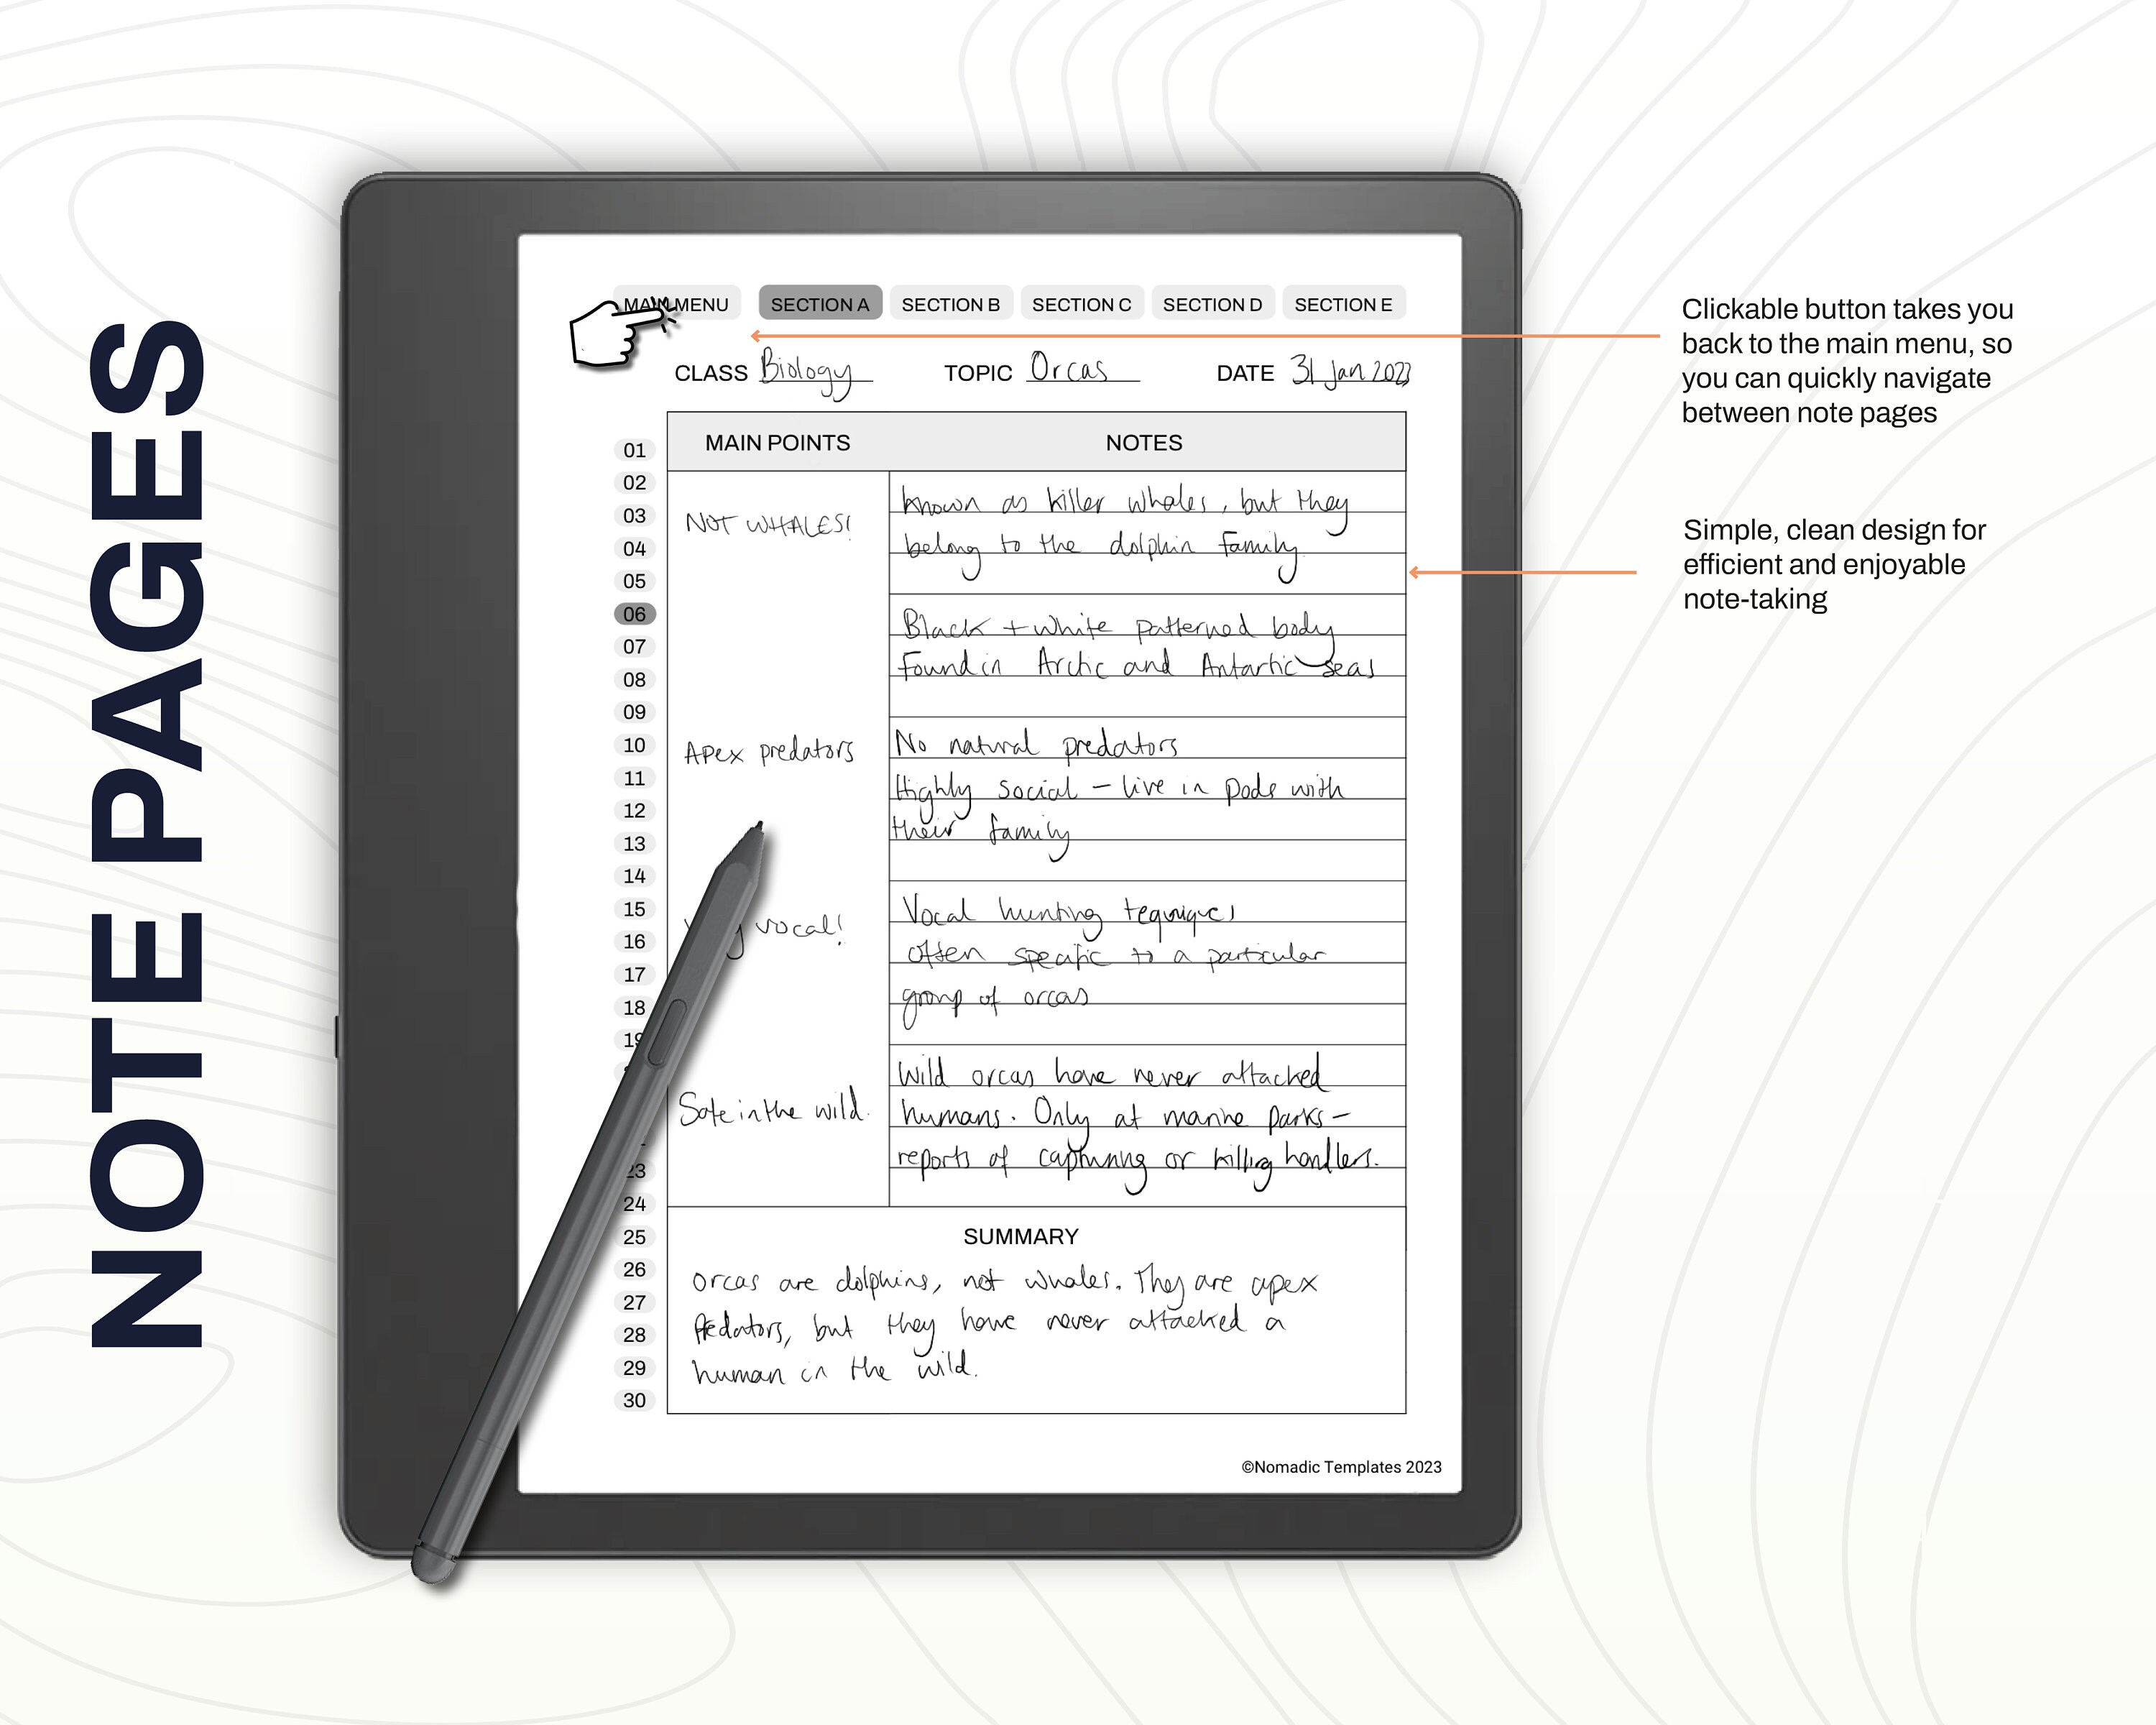 NOTE PAGES
MAIN MENU SECTION A SECTION B SECTION C SECTION D SECTION E
CLASS Biology TOPIC Orcas DATE 31 Jan 2023
MAIN POINTS NOTES
01
02
03
04
05
06
07
08
09
10
11
12
13
14
15
16
17
18
19
23
24
25
26
27
28
29
30
NOT WHALES!
Apex predators
vocal!
Safe in the wild.
known as killer whales, but they
belong to the dolphin family
Black + white patterned body
Found in Arctic and Antartic seas
No natural predators
Highly social – live in pods with
their family
Vocal hunting
often specific to a particular
group of orcas
Wild orcas have never attacked
humans. Only at marine parks –
reports of or killing handlers.
SUMMARY
Orcas are dolphins, not whales. They are apex
predators, but they have never attacked a
human in the wild.
©Nomadic Templates 2023
Clickable button takes you
back to the main menu, so
you can quickly navigate
between note pages
Simple, clean design for
efficient and enjoyable
note-taking